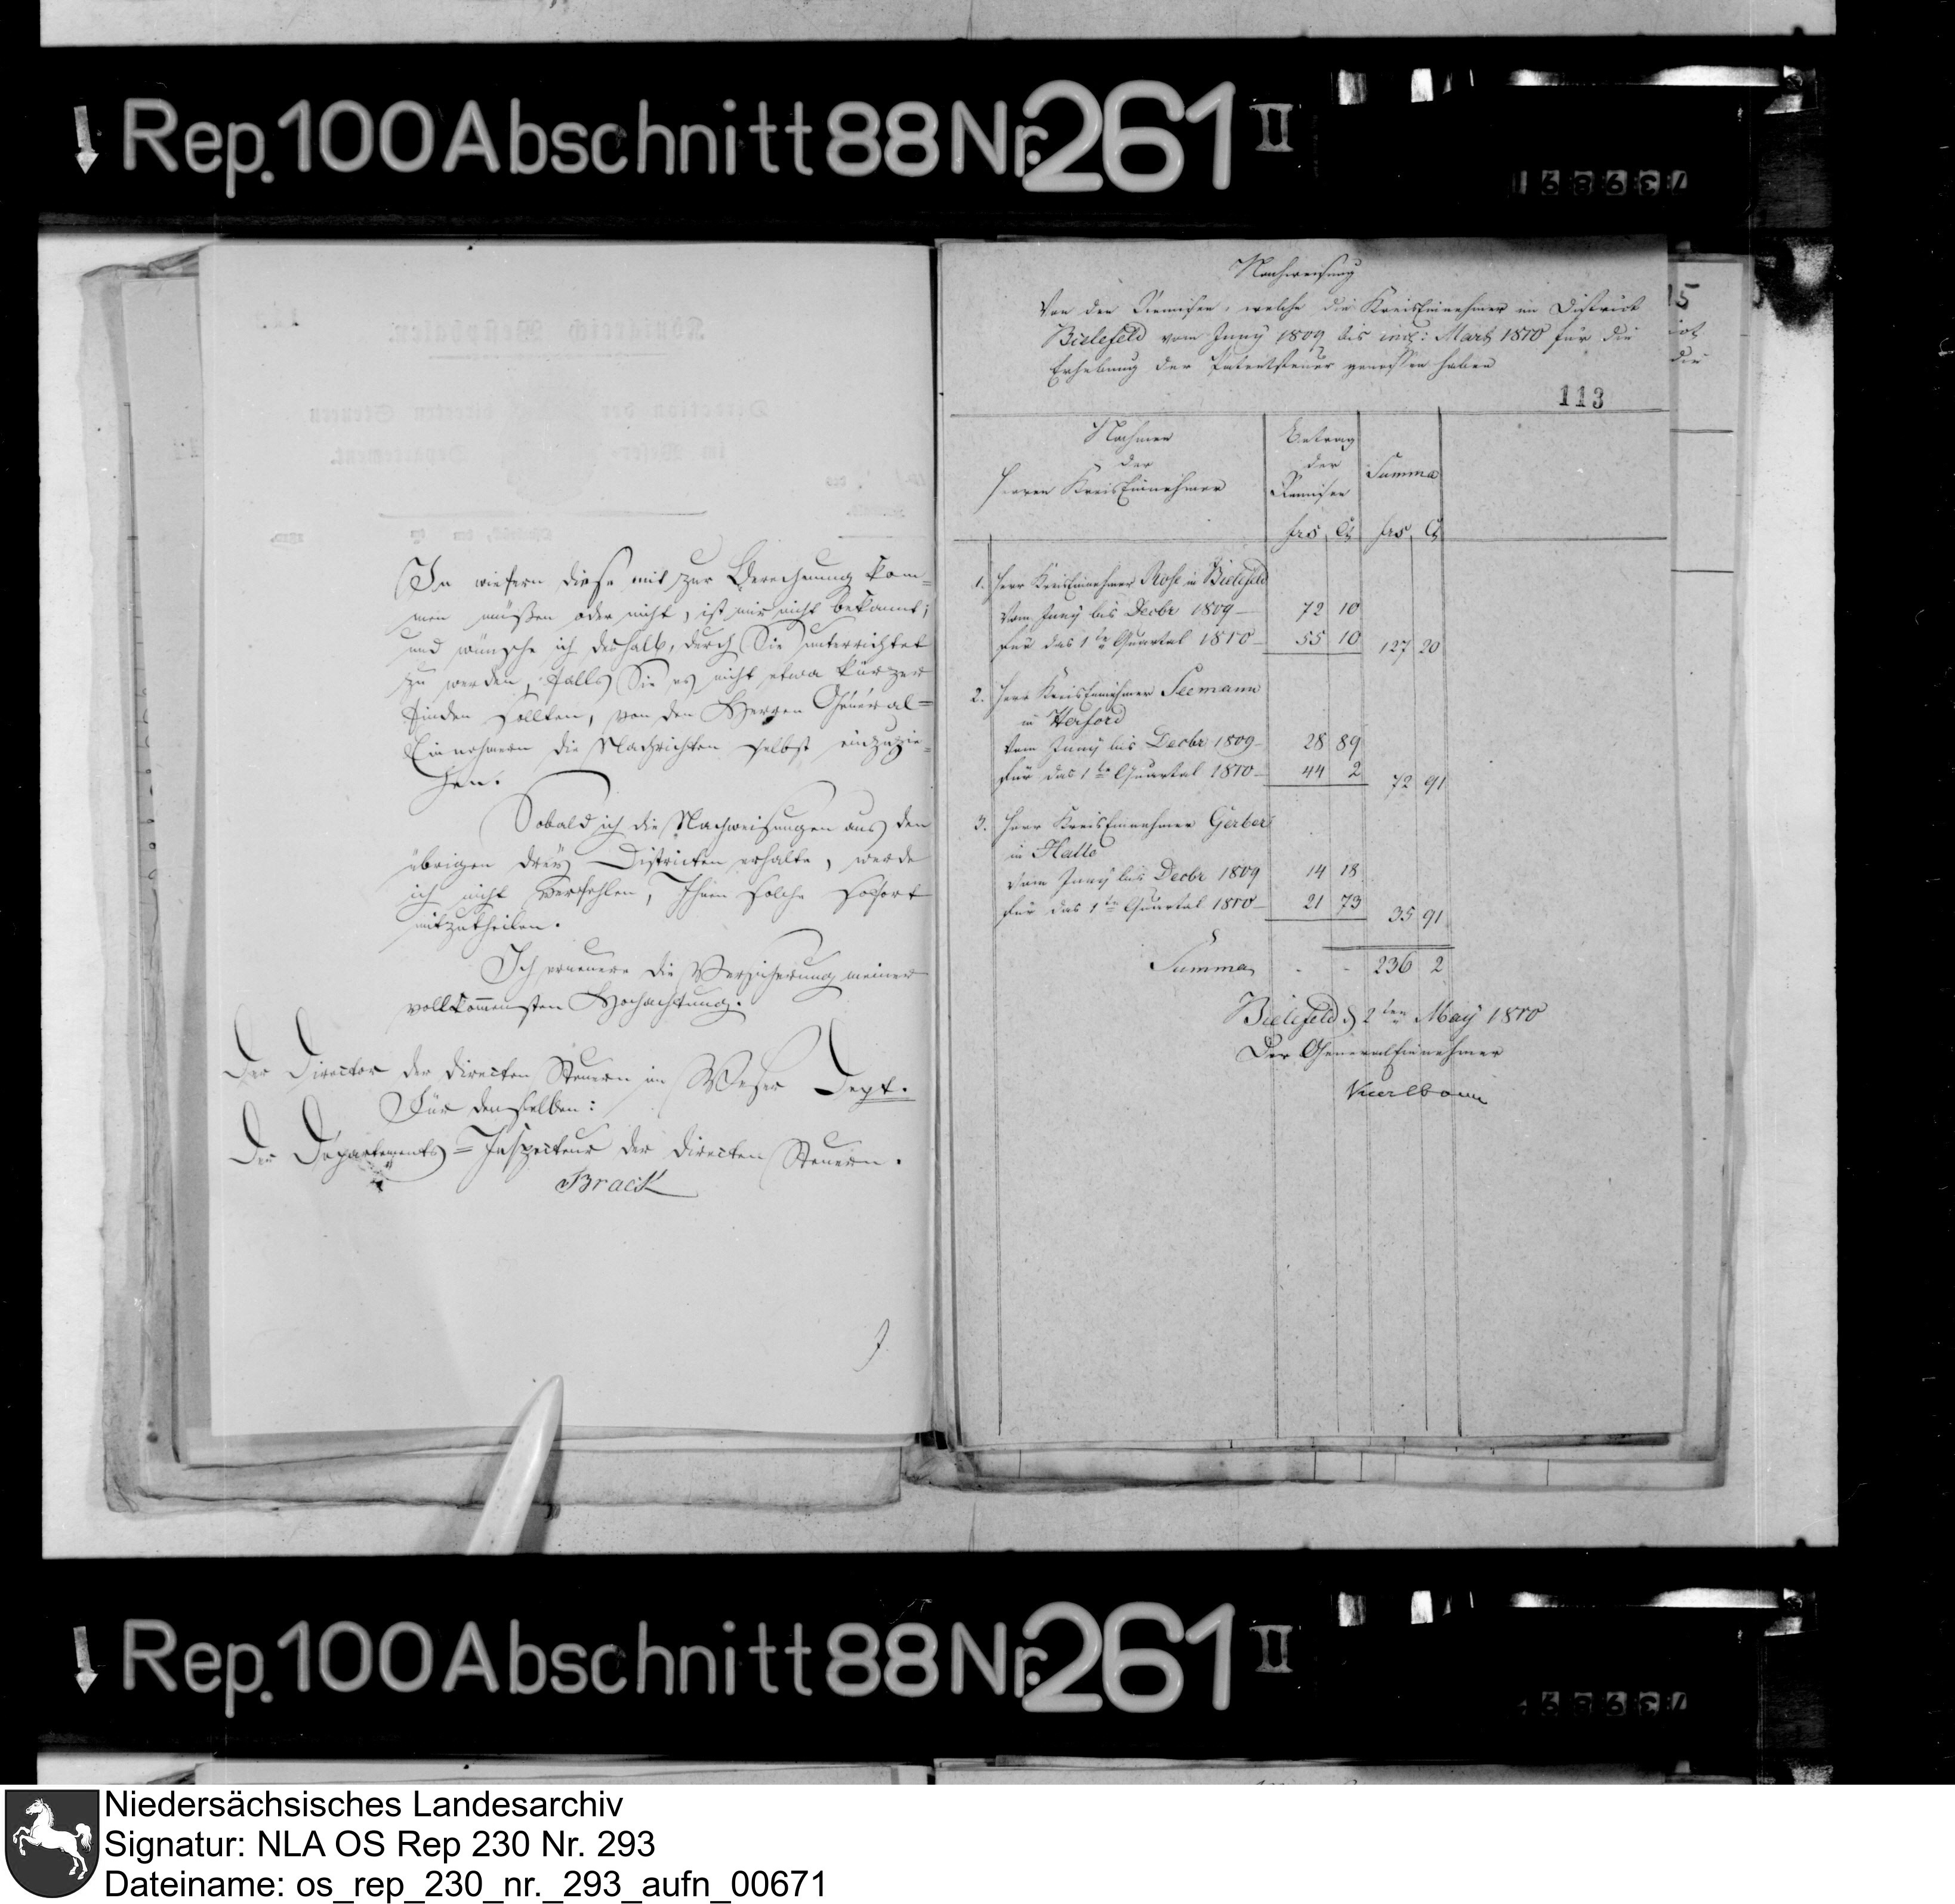 Rep. 100 Abschnitt 88 Nr. 261 II
In wiefern diese mit zur Berechnung kom=
men müßen oder nicht, ist mir nicht bekannt;
und wünsche ich deshalb, durch Sie unterrichtet
zu werden, falls Sie es nicht etwa kürzer
finden sollten, von den Herren Général=
Einnehmern die Nachrichten selbst einzuzie=
hen.
Sobald ich die Nachweisungen aus den
übrigen drey Districten erhalte, werde
ich nicht verfehlen, Ihnen solche sofort
mitzutheilen.
Ich erneuere die Versicherung meiner
vollkom̄ensten Hochachtung.
Der Director der directen Steuern im Weser Dept.
Für denselben:
Der Departements=Inspecteur der directen Steuern.
Brack
Nachweisung
Von den Remisen, welche die KreisEinnehmer im District
Bielefeld vom Juny 1809 bis incl: Marz 1810 für die
Erhebung der Patentsteuer genossen haben
113
Nahmen der Herren KreisEinnehmer
Betrag der Remisen
Summa
frs Cs frs Cs
1. Herr KreisEinnehmer Rose in Bielefeld
Vom Juny bis Decbr 1809 72 10
für das 1te Quartal 1810 55 10 127 20
2. Herr KreisEinnehmer Seemann
in Herford
Vom Juny bis Decbr 1809 28 89
für das 1te Quartal 1810 44 2 72 91
3. Herr KreisEinnehmer Gerber
in Halle
Vom Juny bis Decbr 1809 14 18
für das 1te Quartal 1810 21 73 35 91
Summa - - 236 2
Bielefeld d 2ten May 1810
Der GeneralEinnehmer
15
Rep. 100 Abschnitt 88 Nr. 261 II
Niedersächsisches Landesarchiv
Signatur: NLA OS Rep 230 Nr. 293
Dateiname: os_rep_230_nr._293_aufn_00671